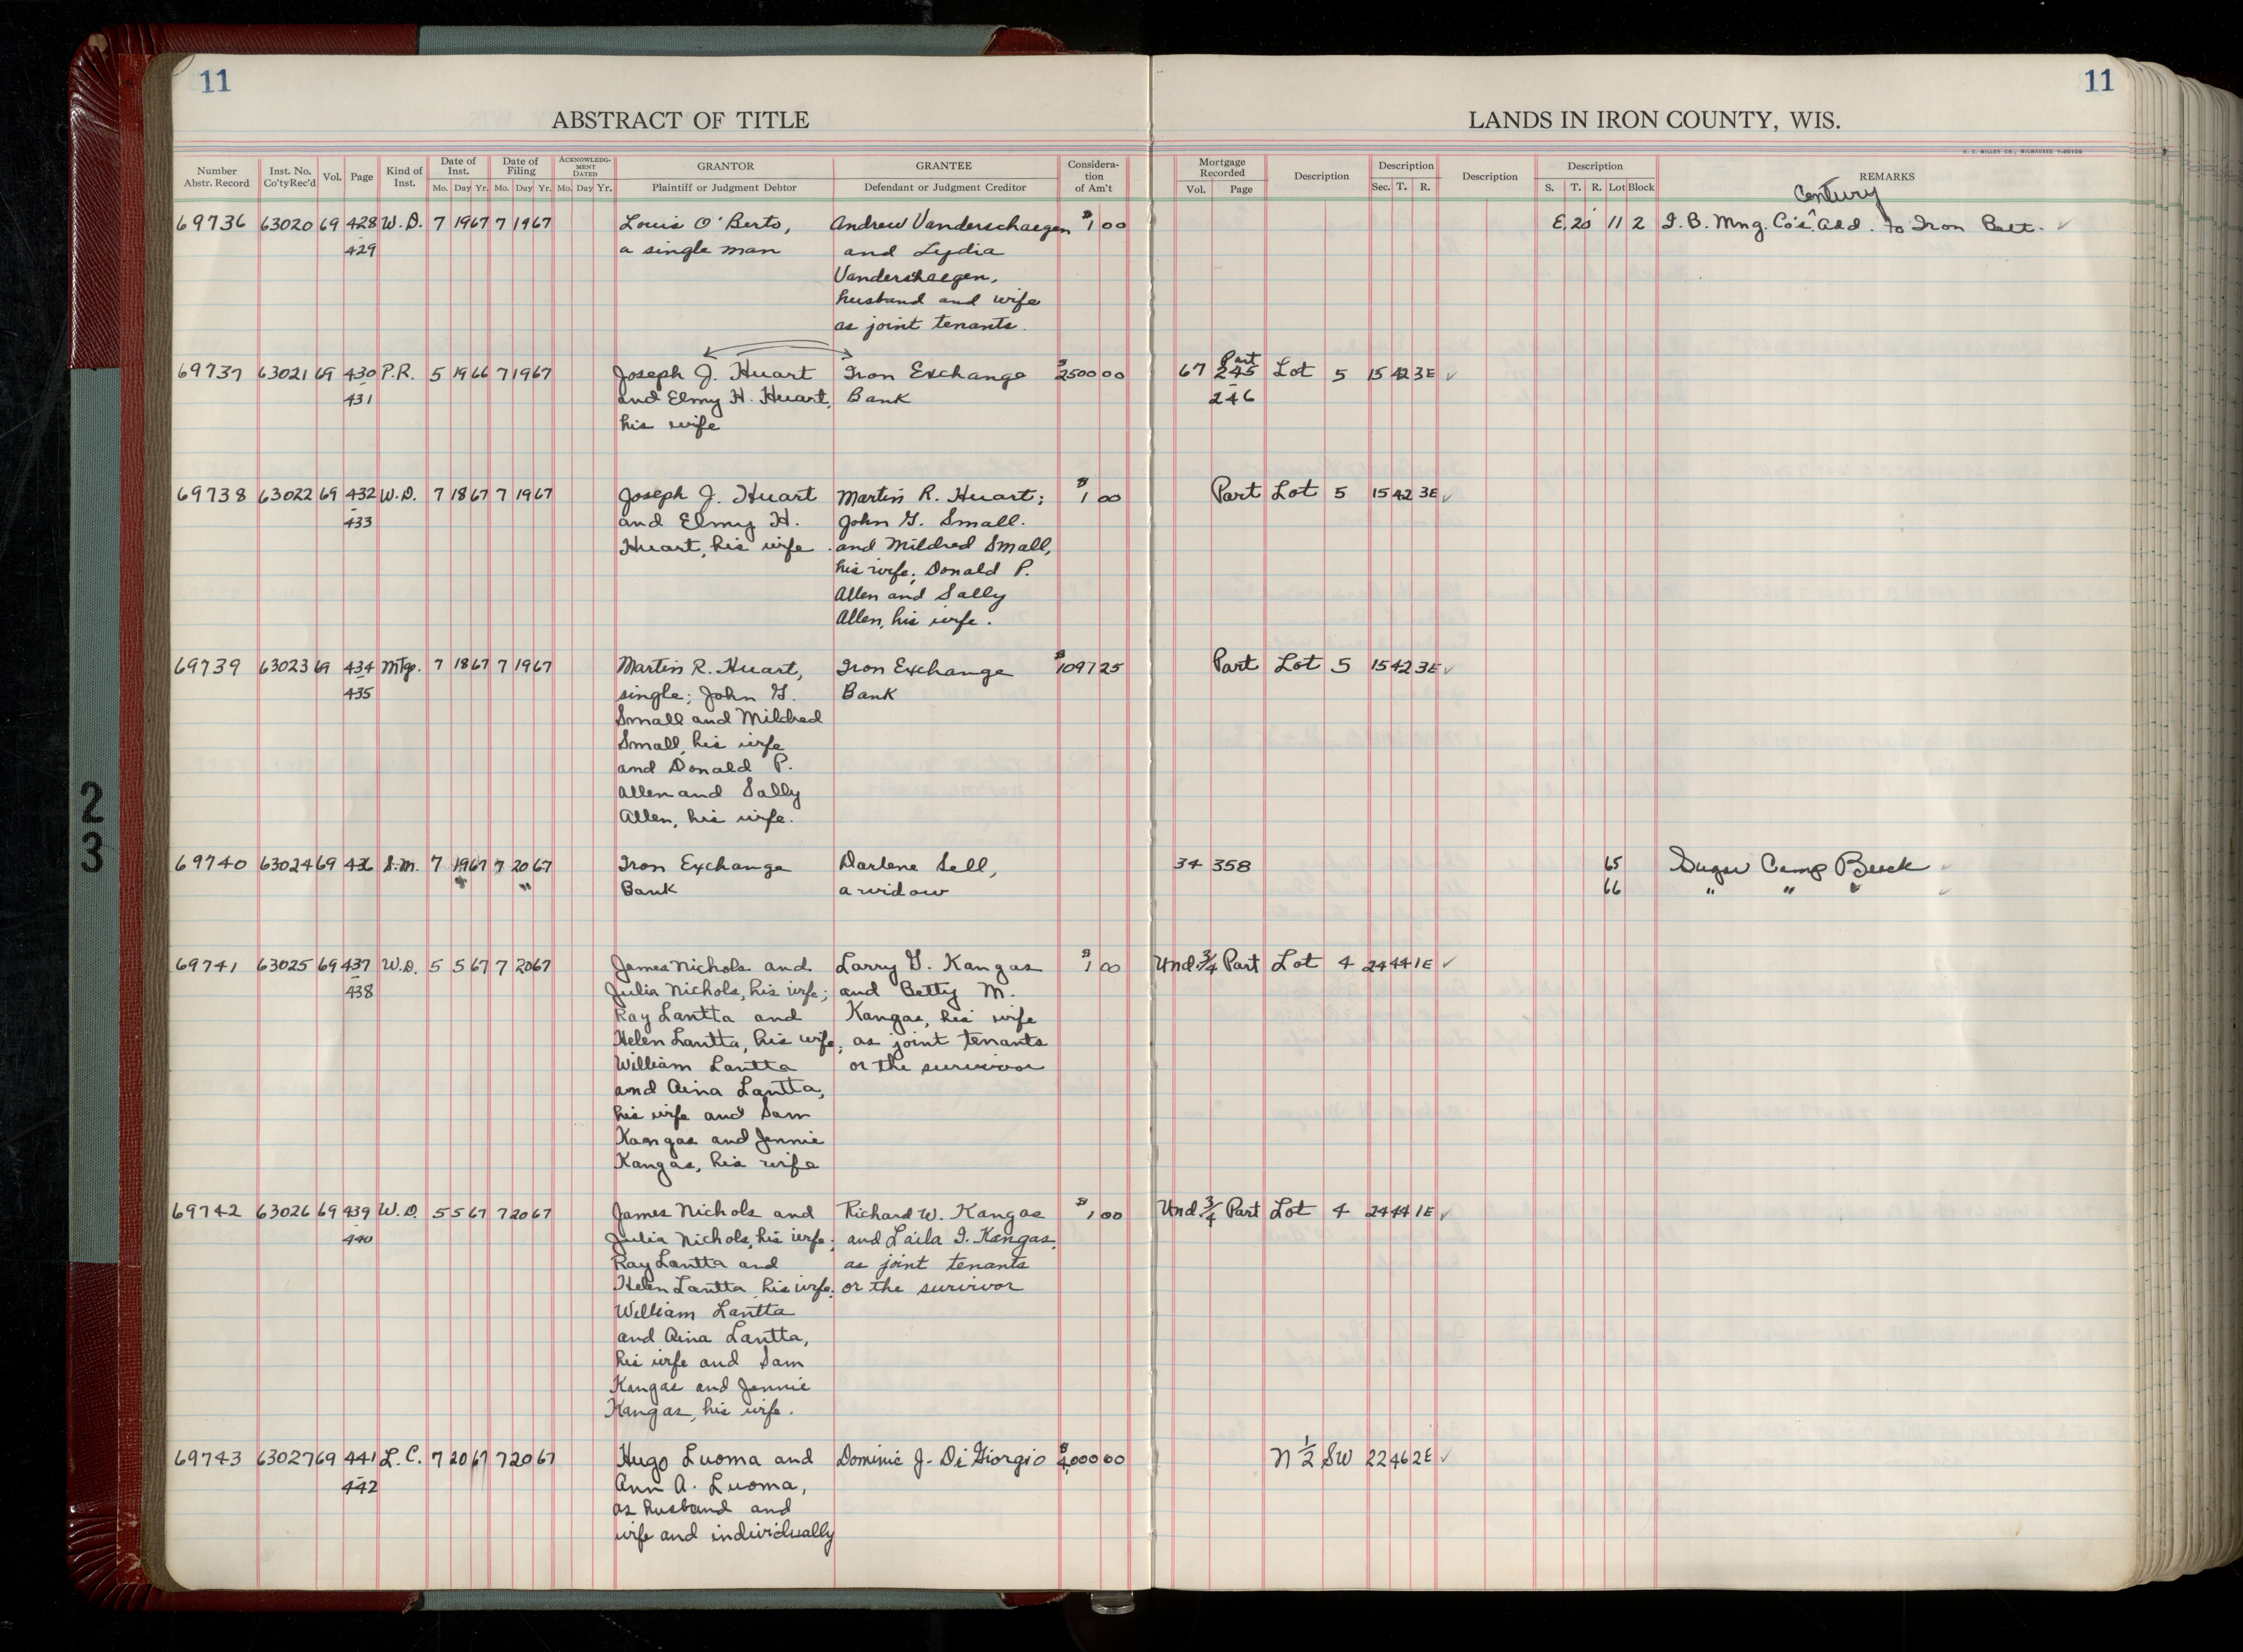 11
11
ABSTRACT OF TITLE
LANDS IN IRON COUNTY, WIS.
H. C. MILLER CO., MILWAUKEE
Number Abstr. Record Inst. No. Co'tyRec'd Vol. Page Kind of Inst. Date of Inst. Mo. Day Yr. Date of Filing Mo. Day Yr. ACKNOWLEDGMENT DATED Mo. Day Yr. GRANTOR Plaintiff or Judgment Debtor GRANTEE Defendant or Judgment Creditor Consideration of Am't Mortgage Recorded Vol. Page Description Description Sec. T. R. Description Description S. T. R. Lot Block REMARKS
Century
69736 63020 69 428 W.D. 7 19 67 7 19 67 Louis O'Berto, Andrew Vanderschaegen $1 00 E. 20' 11 2 I.B. Mng. Co's ^ Add. to Iron Belt. ✓
- 429 a single man and Lydia
Vanderschaegen,
husband and wife
as joint tenants.
69737 63021 69 430 P.R. 5 19 66 7 19 67 Joseph J. Huart Iron Exchange $2500 00 67 Part 245 Lot 5 15 42 3E ✓
- 431 and Elmy H. Huart, Bank - 246
his wife
69738 63022 69 432 W.D. 7 18 67 7 19 67 Joseph J. Huart Martin R. Huart; $1 00 Part Lot 5 15 42 3E ✓
- 433 and Elmy H. John G. Small.
Huart, his wife. and Mildred Small,
his wife; Donald P.
Allen and Sally
Allen, his wife.
69739 63023 69 434 Mtg. 7 18 67 7 19 67 Martin R. Huart, Iron Exchange $1097 25 Part Lot 5 15 42 3E ✓
- 435 single; John G. Bank
Small and Mildred
Small, his wife
and Donald P.
Allen and Sally
Allen, his wife.
69740 63024 69 436 S.M. 7 19 67 7 20 67 Iron Exchange Darlene Sell, 34 358 65 Sugar Camp Beach ✓
" Bank a widow 66 " " " ✓
69741 63025 69 437 W.D. 5 5 67 7 20 67 James Nichols and Larry G. Kangas $1 00 Und. 3/4 Part Lot 4 24 44 1E ✓
- 438 Julia Nichols, his wife; and Betty M.
Ray Lantta and Kangas, his wife
Helen Lantta, his wife; as joint tenants
William Lantta or the survivor
and Aina Lantta,
his wife and Sam
Kangas and Jennie
Kangas, his wife
69742 63026 69 439 W.D. 5 5 67 7 20 67 James Nichols and Richard W. Kangas $1 00 Und. 3/4 Part Lot 4 24 44 1E ✓
- 440 Julia Nichols, his wife; and Laila I. Kangas,
Ray Lantta and as joint tenants
Helen Lantta, his wife; or the survivor
William Lantta
and Aina Lantta,
his wife and Sam
Kangas and Jennie
Kangas, his wife.
69743 63027 69 441 L.C. 7 20 67 7 20 67 Hugo Luoma and Dominic J. Di Giorgio $4,000 00 N 1/2 SW 22 46 2E ✓
- 442 Ann A. Luoma,
as husband and
wife and individually
23